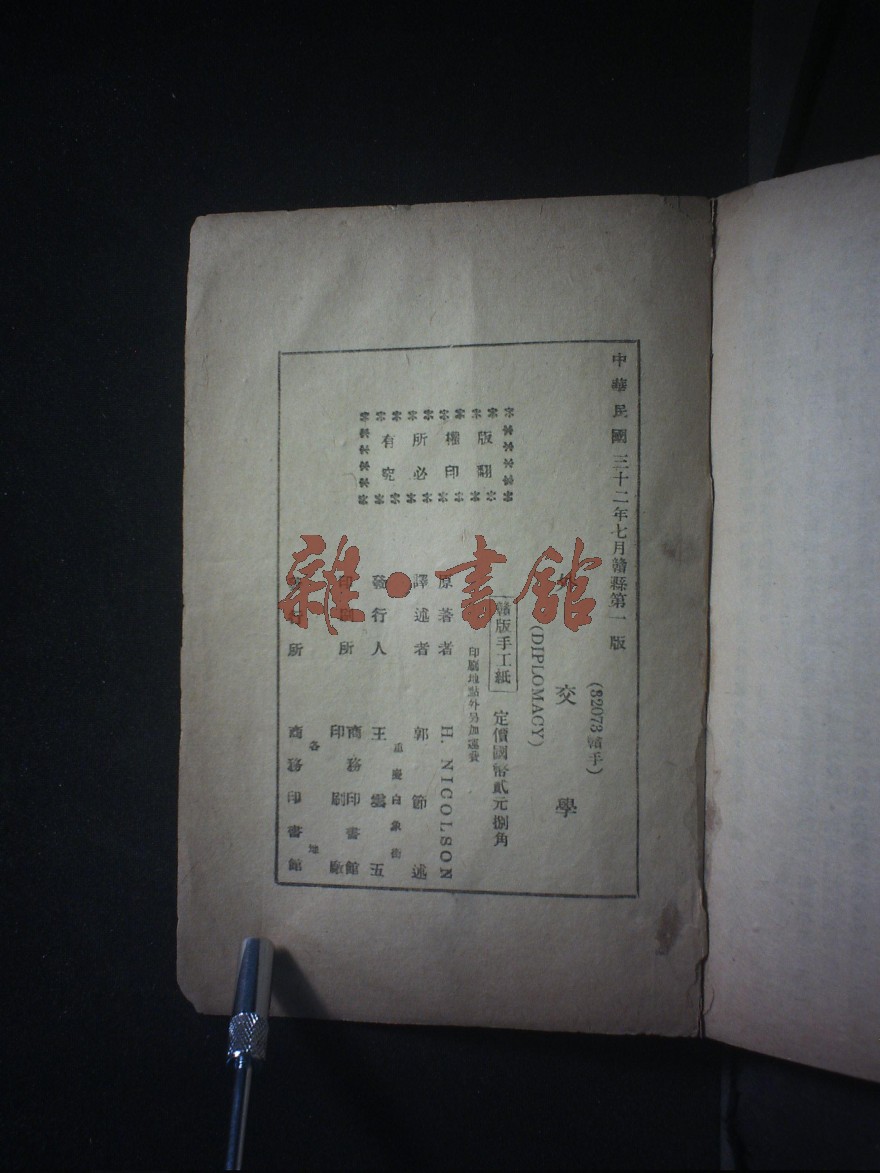 中華民國三十二年七月贛縣第一版
(32073贛手)
外交學
(DIPLOMACY)
贛版手工紙 定價國幣貳元捌角
印刷地點外另加運費
版權所有
翻印必究
原著者 H. NICOLSON
譯述者 郭節述
重慶白象街
發行人 王雲五
印刷所 商務印書館
印刷廠
各地
發行所 商務印書館
雜·書館